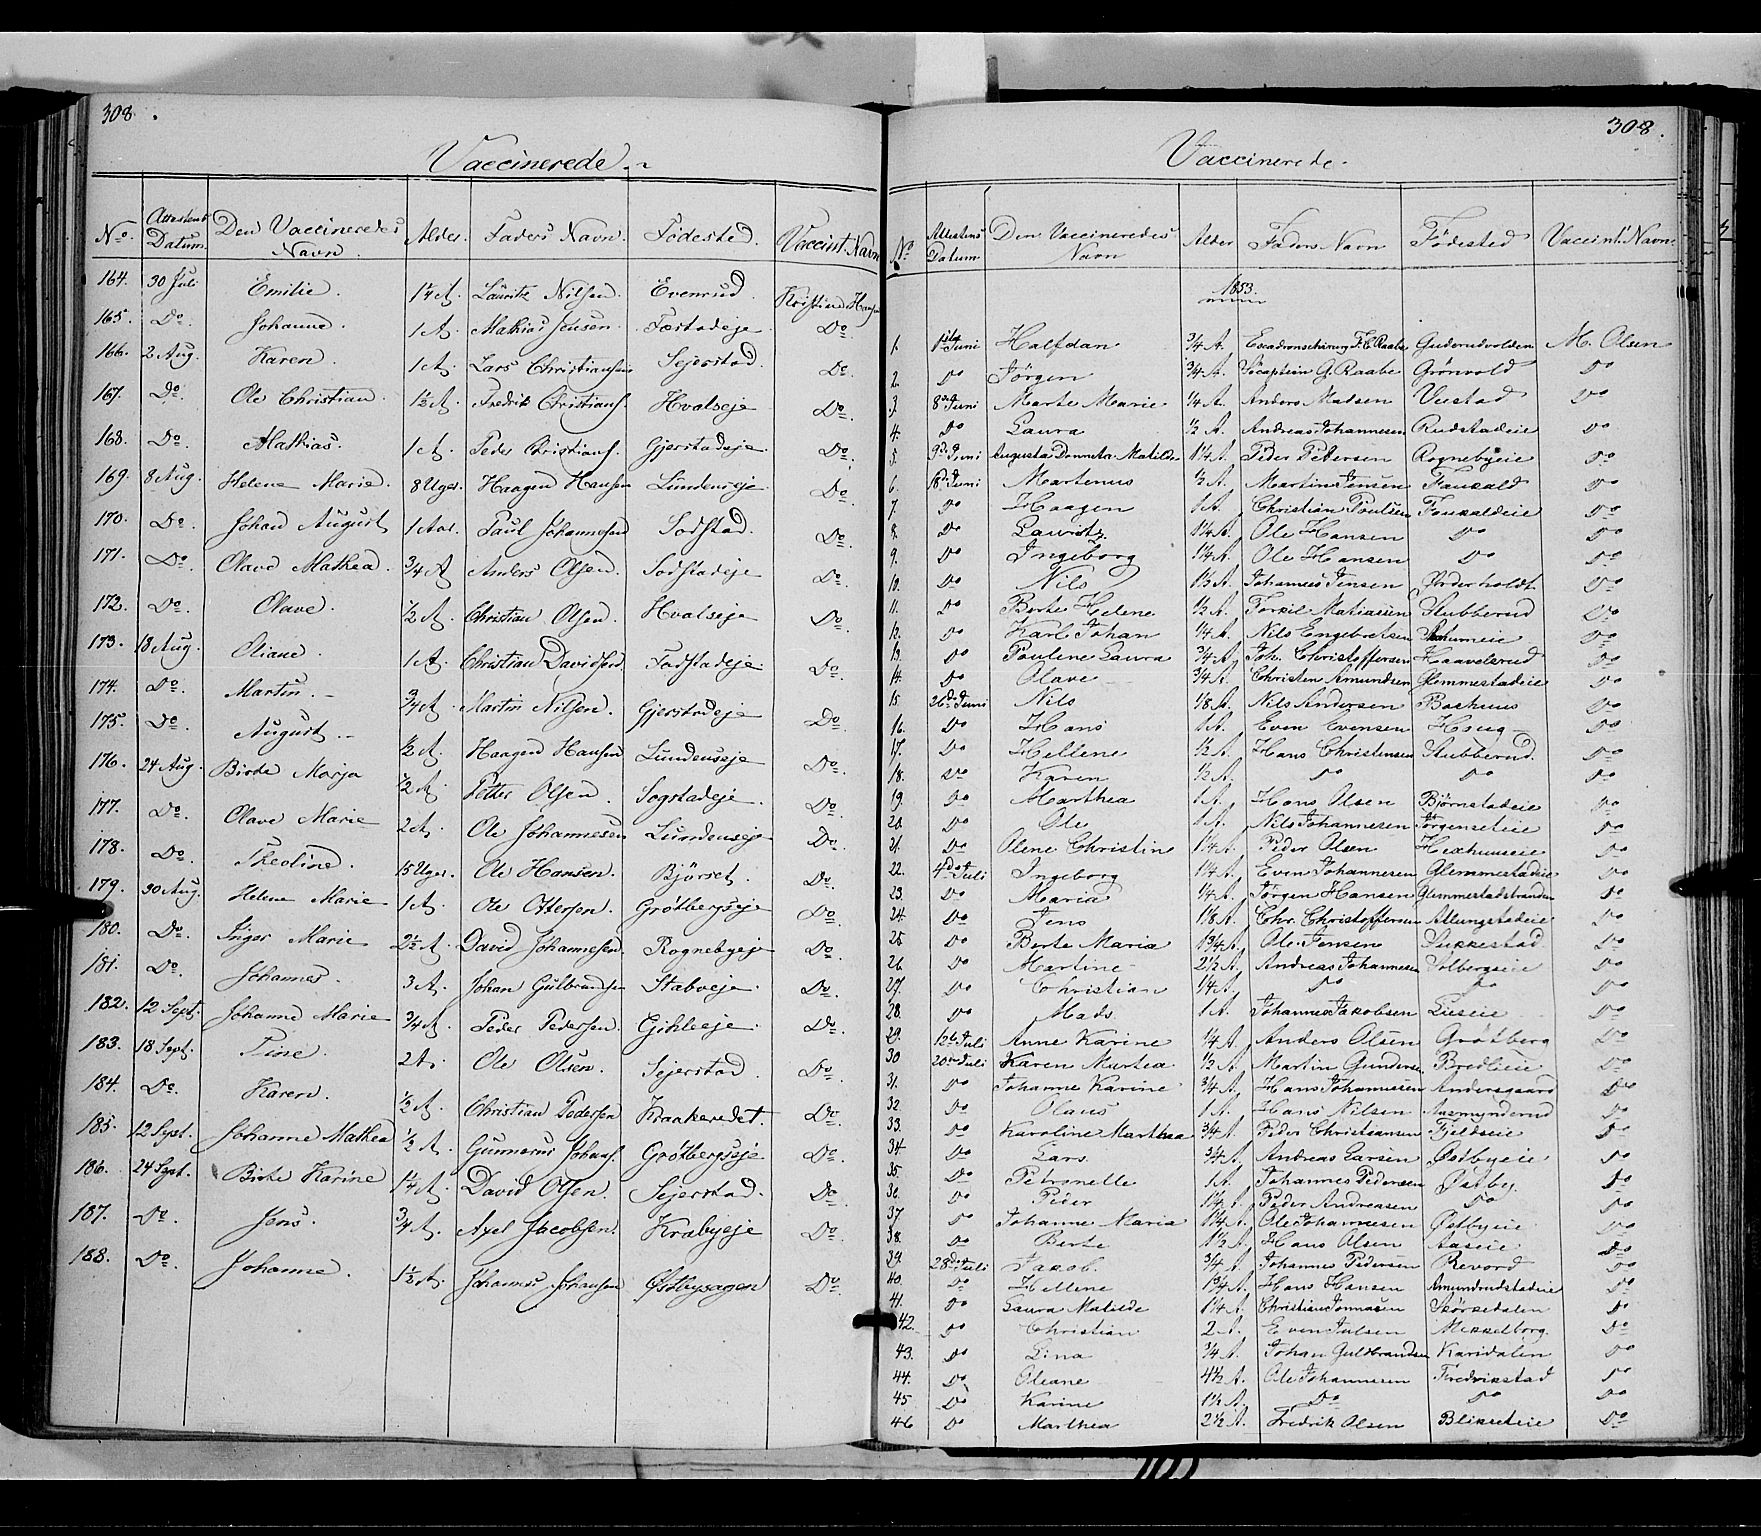 308.
Vaccinerede.
No. Attestens Datum. Den Vaccineredes Navn. Alder. Faders Navn. Fødested. Vaccint. Navn
164. 30 Juli Emilie. 1 1/4 A. Lauritz Nilsen. Evenrud. Kristiane Hansen
165. Do. Johanne. 1 A. Mathias Jensen. Do.
166. 2 Aug. Karen. 1 A. Lars Christiansen Sejerstad. Do.
167. Do. Ole Christian. 1 1/2 A. Fredrik Christians. Hvalseje Do.
168. Do. Mathias. 1 A. Peder Christians. Gjerstadseje. Do.
169. 8 Aug. Helene Marie. 8 Uger. Haagen Hansen Lundenseje. Do.
170. Do. Johan August 1 Aar. Paul Johannesen Sodstad. Do.
171. Do. Olava Mathea. 3/4 A. Anders Olsen. Sodstadeje Do.
172. Do. Olave. 1/2 A. Christian Olsen. Hvalseje Do.
173. 18 Aug. Oliane. 1 A. Christian Davidsen Do.
174. Do. Martin. 3/4 A. Martin Nilsen. Gjerstadeje Do.
175. Do. August. 1/2 A. Haagen Hansen Lundenseje Do.
176. 24 Aug. Birthe Marja 1/2 A. Petter Olsen. Sogstadeje. Do.
177. Do. Olave Marie 2 A. Ole Johannesen Lundenseje Do.
178. Do. Theoline. 15 Uger. Ole Hansen. Bjørset. Do.
179. 30 Aug. Helene Marie 1 A. Ole Ottersen. Grøtbergseje Do.
180. Do. Inger Marie 2 1/2 A. David Johannesen Rognebyeje Do.
181. Do. Johannes. 3 A. Johan Gulbrandsen Stabveje. Do.
182. 12 Sept. Johanne Marie 3/4 A. Peder Pedersen. Gihleeje. Do.
183. 18 Sept. Tine. 2 A. Ole Olsen. Sejerstad. Do.
184. Do. Karen. 1/2 A. Christian Pedersen Kraakeredet. Do.
185. 12 Sept. Johanne Mathea 1/2 A. Gunnerus Johans. Grøtbergseje Do.
186. 24 Sept. Birte Karine 1 1/4 A. David Olsen. Sejerstad. Do.
187. Do. Jens. 3/4 A. Axel Jacobsen. Krabyeje Do.
188. Do. Johanne. 1 1/2 A. Johannes Johansen Østbysagen Do.
308.
Vaccinerede.
No Attestens Datum Den Vaccineredes Navn Alder Faders Navn Fødested Vaccint. Navn.
1853.
1. 1ste Juni Halfdan 3/4 A. F. C. Raabe Guderudvolden M. Olsen
2. Do Jörgen 3/4 A. G. Raabe Grönvold Do
3. 8de Juni Marte Marie 1/4 A. Anders Madsen Vestad Do
4. Do Laura 1/2 A. Andreas Johannesen Rudstadeie Do
5. 9de Juni Augusta Matilde 1 1/4 A. Peder Pedersen Rognebyeie Do
6. 18de Juni Martenus 1/2 A. Martin Jensen Faukald Do
7. Do Haagen 1 A. Christian Poulsen Faukaldeie Do
8. Do Lauritz 1 1/4 A. Ole Hansen Do Do
9. Do Ingeborg 1 1/4 A. Ole Hansen Do Do
10. Do Nils 1 1/2 A. Johannes Jensen Do
11. Do Berte Helene 1/2 A. Torkil Matiassen Stubberud Do
12. Do Karl Johan 1/4 A. Nils Engebretsen Do
13. Do Pouline Laura 3/4 A. Joh. Christoffersen Haavelsrud Do
14. Do Olave 3/4 A. Christen Amundsen Glemmestadeie Do
15. 26de Juni Nils 1/8 A. Nils Andersen Do
16. Do Hans 1 A. Even Evensen Haug Do
17. Do Hellene 1/2 A. Hans Christensen Stubberud. Do
18. Do Karen 1/2 A. Do Do Do
19. Do Marthea 1 A. Hans Olsen Bjørnstadeie Do
20. Do Ole 1 A. Nils Johannesen Jørgenseteie Do
21. Do Olene Christine 1 1/4 A. Peder Olsen Hexhumseie Do
22. 4de Juli Ingeborg 1 1/4 A. Even Johannesen Glemmestadeie Do
23. Do Maria 1/4 A. Jørgen Hansen Glemmestadstranden Do
24. Do Jens 1 1/8 A. Chr. Christoffersen Allungstadeie Do
25. Do Berte Maria 1 3/4 A. Ole Jensen Sukkestad. Do
26. Do Martine 2 1/2 A. Andreas Johannesen Solbergseie Do
27. Do Christian 1/4 A. Do Do Do
28. Do Mads. 1 A. Johannes Jakobsen Lieseie Do
29. 12te Juli Anne Karine 1/4 A. Anders Olsen Grøtberg Do
30 20de Juli Karen Martea 1/2 A. Martin Gunders. Bredlieie Do
31. Do Johanne Karine 3/4 A. Hans Johannesen Andersgaard Do
32. Do Olaus 1 A. Hans Nilsen Aasmynderud Do
33. Do Karoline Marthea 3/4 A. Peder Christiansen Fjeldseie Do
34 Do Lars. 3/4 A. Andreas Larsen Østbyeie Do
35. Do Petronelle 1 A. Johannes Pedersen Østby. Do
36. Do Peder 1 1/4 A. Peder Andreasen Do Do
37. Do Johanne Maria 1 1/4 A. Ole Johannesen Østbyeie Do
38. Do Berte 1 1/2 A. Hans Olsen Aaseie Do
39. 28de Juli Jakob. 3/4 A. Johannes Pedersen Revord Do
40. Do Hellene 1 3/4 A. Hans Hansen Amundrudstadeie Do
41. Do Laura Matilde 1 1/4 A. Christian Jonnasen Skörsedalen Do
42. Do Christian 2 A. Even Julsen Mikkelborg. Do
43. Do Lina 3/4 A. Johan Guldbrandsen Karidalen Do
44. Do Oleane 4 1/2 A. Ole Johannesen Fredrikstad Do
45 Do Karine 1 1/2 A. Do Do Do
46 Do Marthea 2 1/2 A. Fredrik Olsen Blikseteie Do